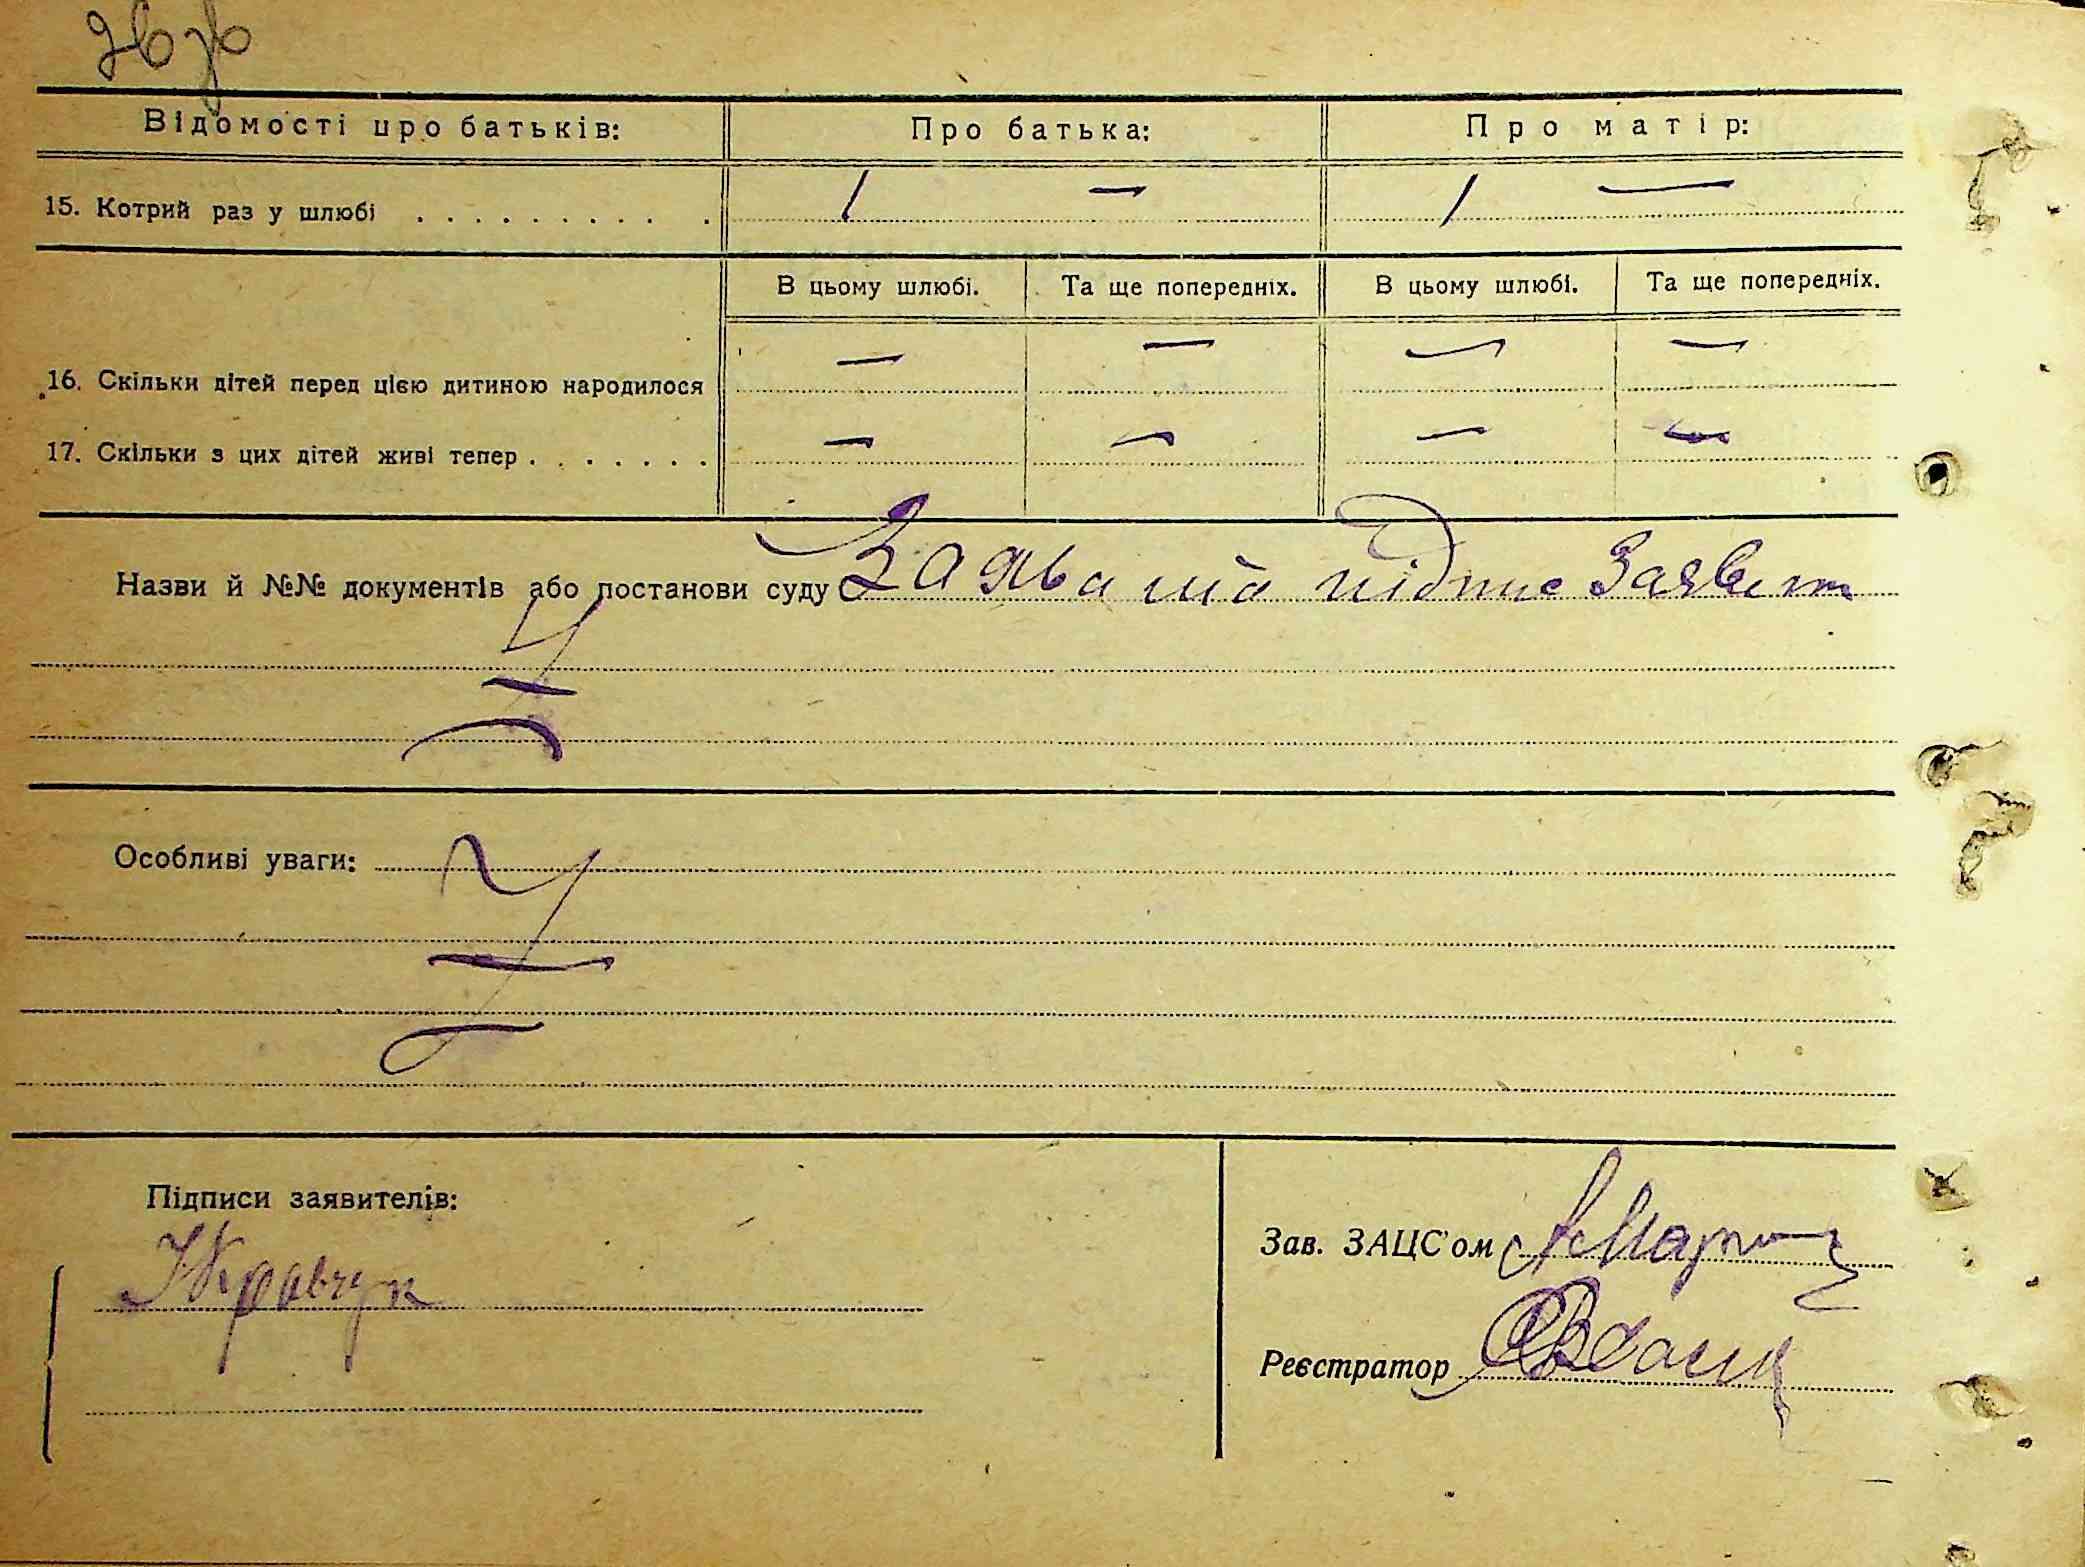 26 зв
Відомості про батьків: Про батька: Про матір:
15. Котрий раз у шлюбі . . . . . . . . . . 1 — 1 —
В цьому шлюбі. Та ще попередніх. В цьому шлюбі. Та ще попередніх.
16. Скільки дітей перед цією дитиною народилося — — — —
17. Скільки з цих дітей живі тепер . . . . . . . — — — —
Назви й №№ документів або постанови суду Заява та підпис Заявит
Особливі уваги:
Підписи заявителів:
Зав. ЗАЦС'ом
Кравчук
Реєстратор